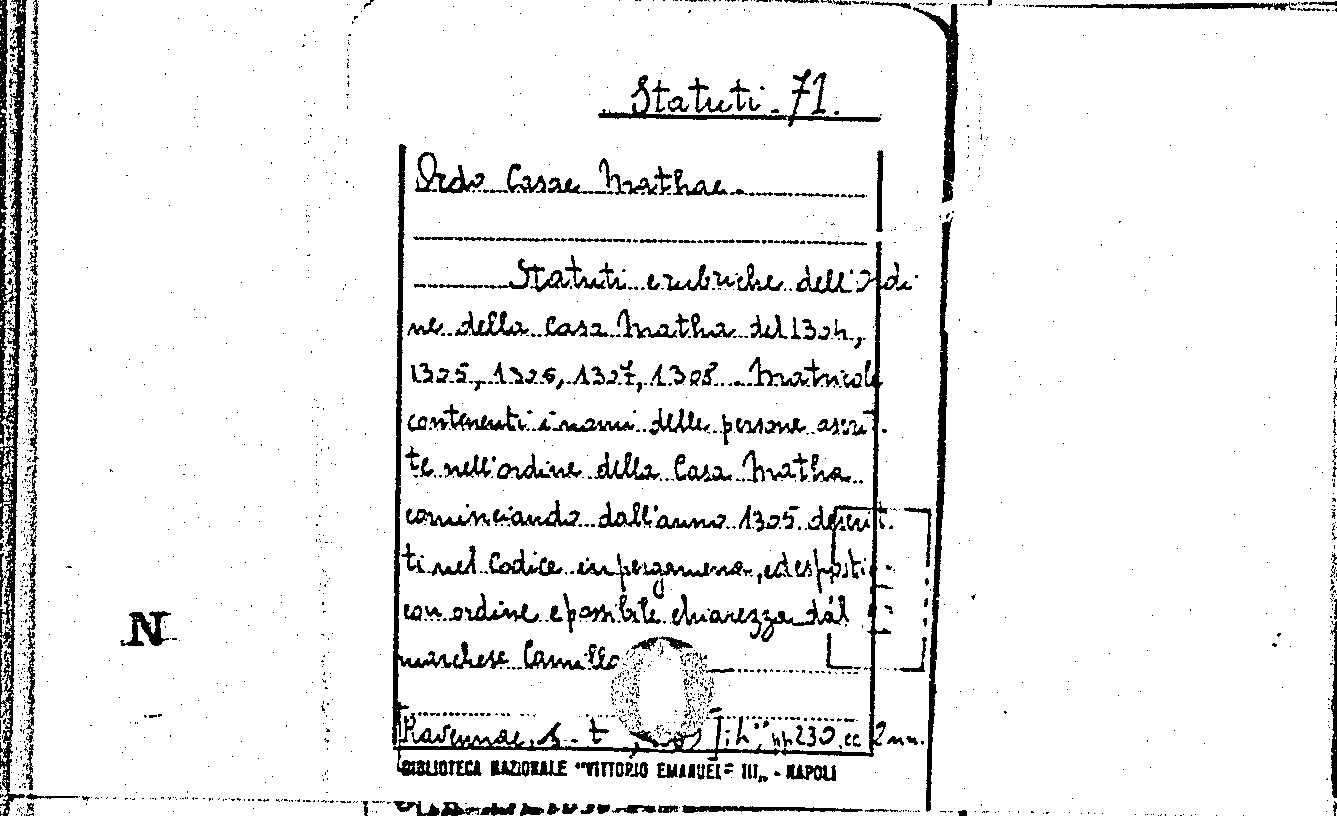 Statuti - 71.
Ordo Casae Mathae.
Statuti e rubriche dell'Ordi
ne della Casa Matha del 1304,
1305, 1306, 1307, 1308. Matricole
contenenti i nomi delle persone ascrit-
te nell'ordine della Casa Matha
cominciando dall'anno 1305 descrit-
ti nel Codice in pergamena, ed esposti
con ordine e possibile chiarezza dal
marchese Camillo
Ravennae, s. t.
N
BIBLIOTECA NAZIONALE "VITTORIO EMANUELE III" - NAPOLI